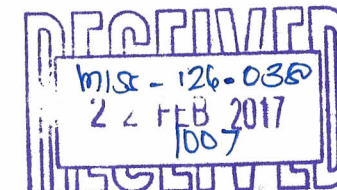 RECEIVED
misc - 126-0380
22 FEB 2017
1007
RECEIVED